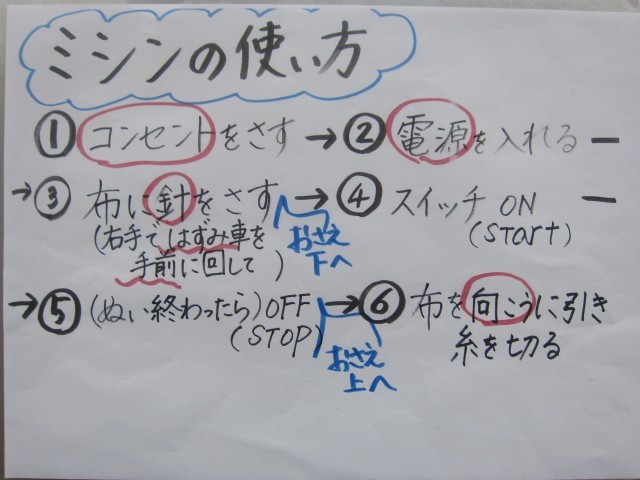 ミシンの使い方
① コンセントをさす → ② 電源を入れる ー
→ ③ 布に針をさす → ④ スイッチ ON ー
(右手ではずみ車を手前に回して)
(START)
おさえ下へ
→ ⑤ (ぬい終わったら) OFF → ⑥ 布を向こうに引き
(STOP)
糸を切る
おさえ上へ